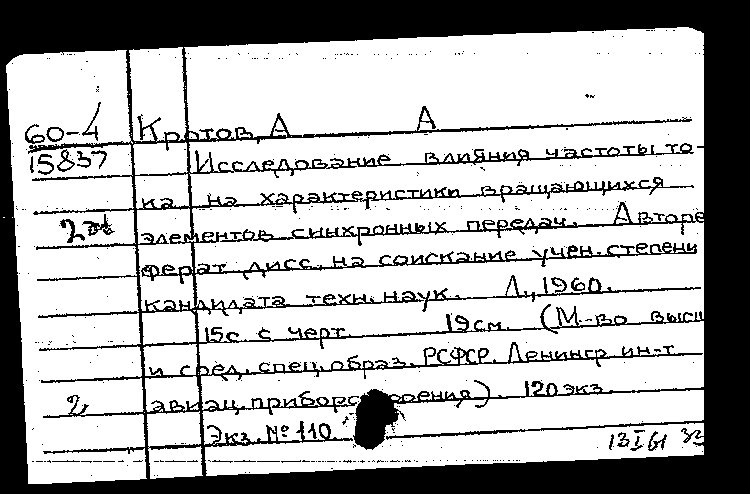 60-4 Кротов, А А
15837 Исследование влияния частоты то-
ка на характеристики вращающихся
2 элементов синхронных передач. Авторе
ферат дисс. на соискание учен. степени
кандидата техн. наук. Л., 1960.
15с с черт. 19см. (М-во высш
и сред. спец. образ. РСФСР. Ленингр ин-т
2, авиац. приборостроения). 120 экз.
Экз. № 110.
13 I 61 33